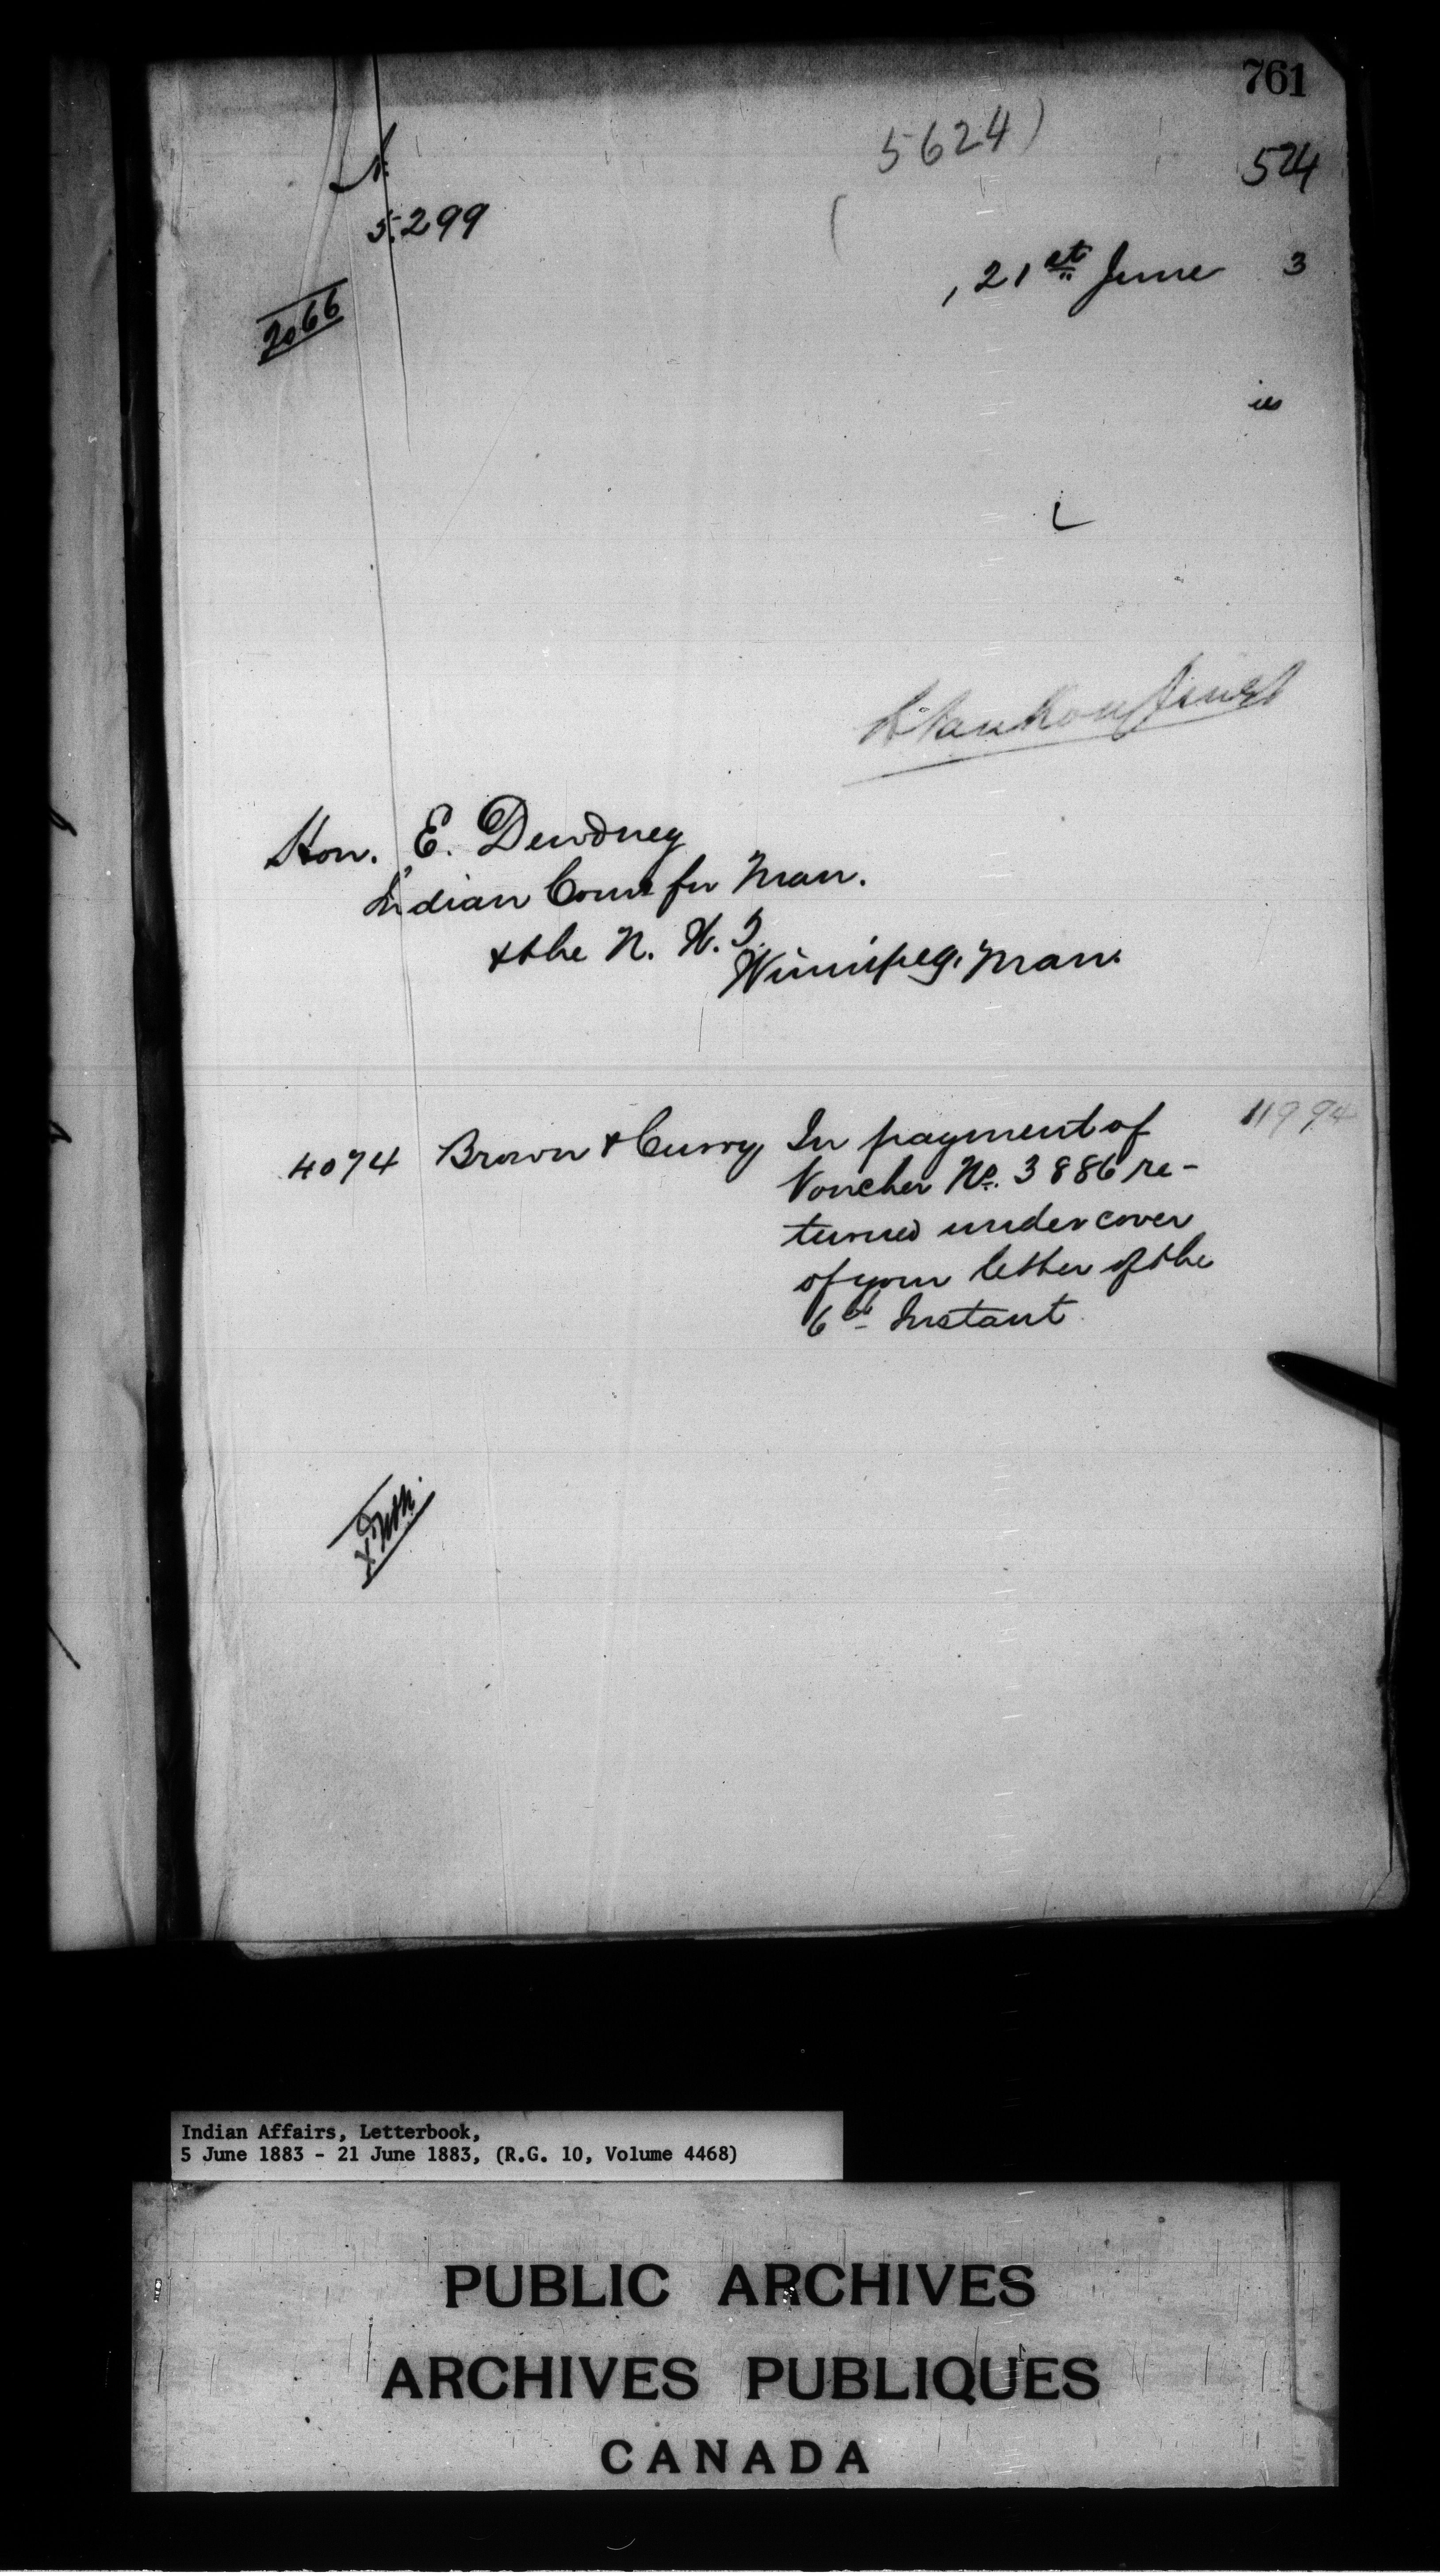 761
5624)
524
N.
5299
, 21st June 3
2066
L. Vankoughnet
Hon. E. Dewdney
Indian Comr for Man.
& the N. W. T.
Winnipeg. Man.
4074 Brown & Curry In payment of 119 94
Voucher No. 3886 re-
turned under cover
of your letter of the
6th Instant
Indian Affairs, Letterbook,
5 June 1883 - 21 June 1883, (R.G. 10, Volume 4468)
PUBLIC ARCHIVES
ARCHIVES PUBLIQUES
CANADA